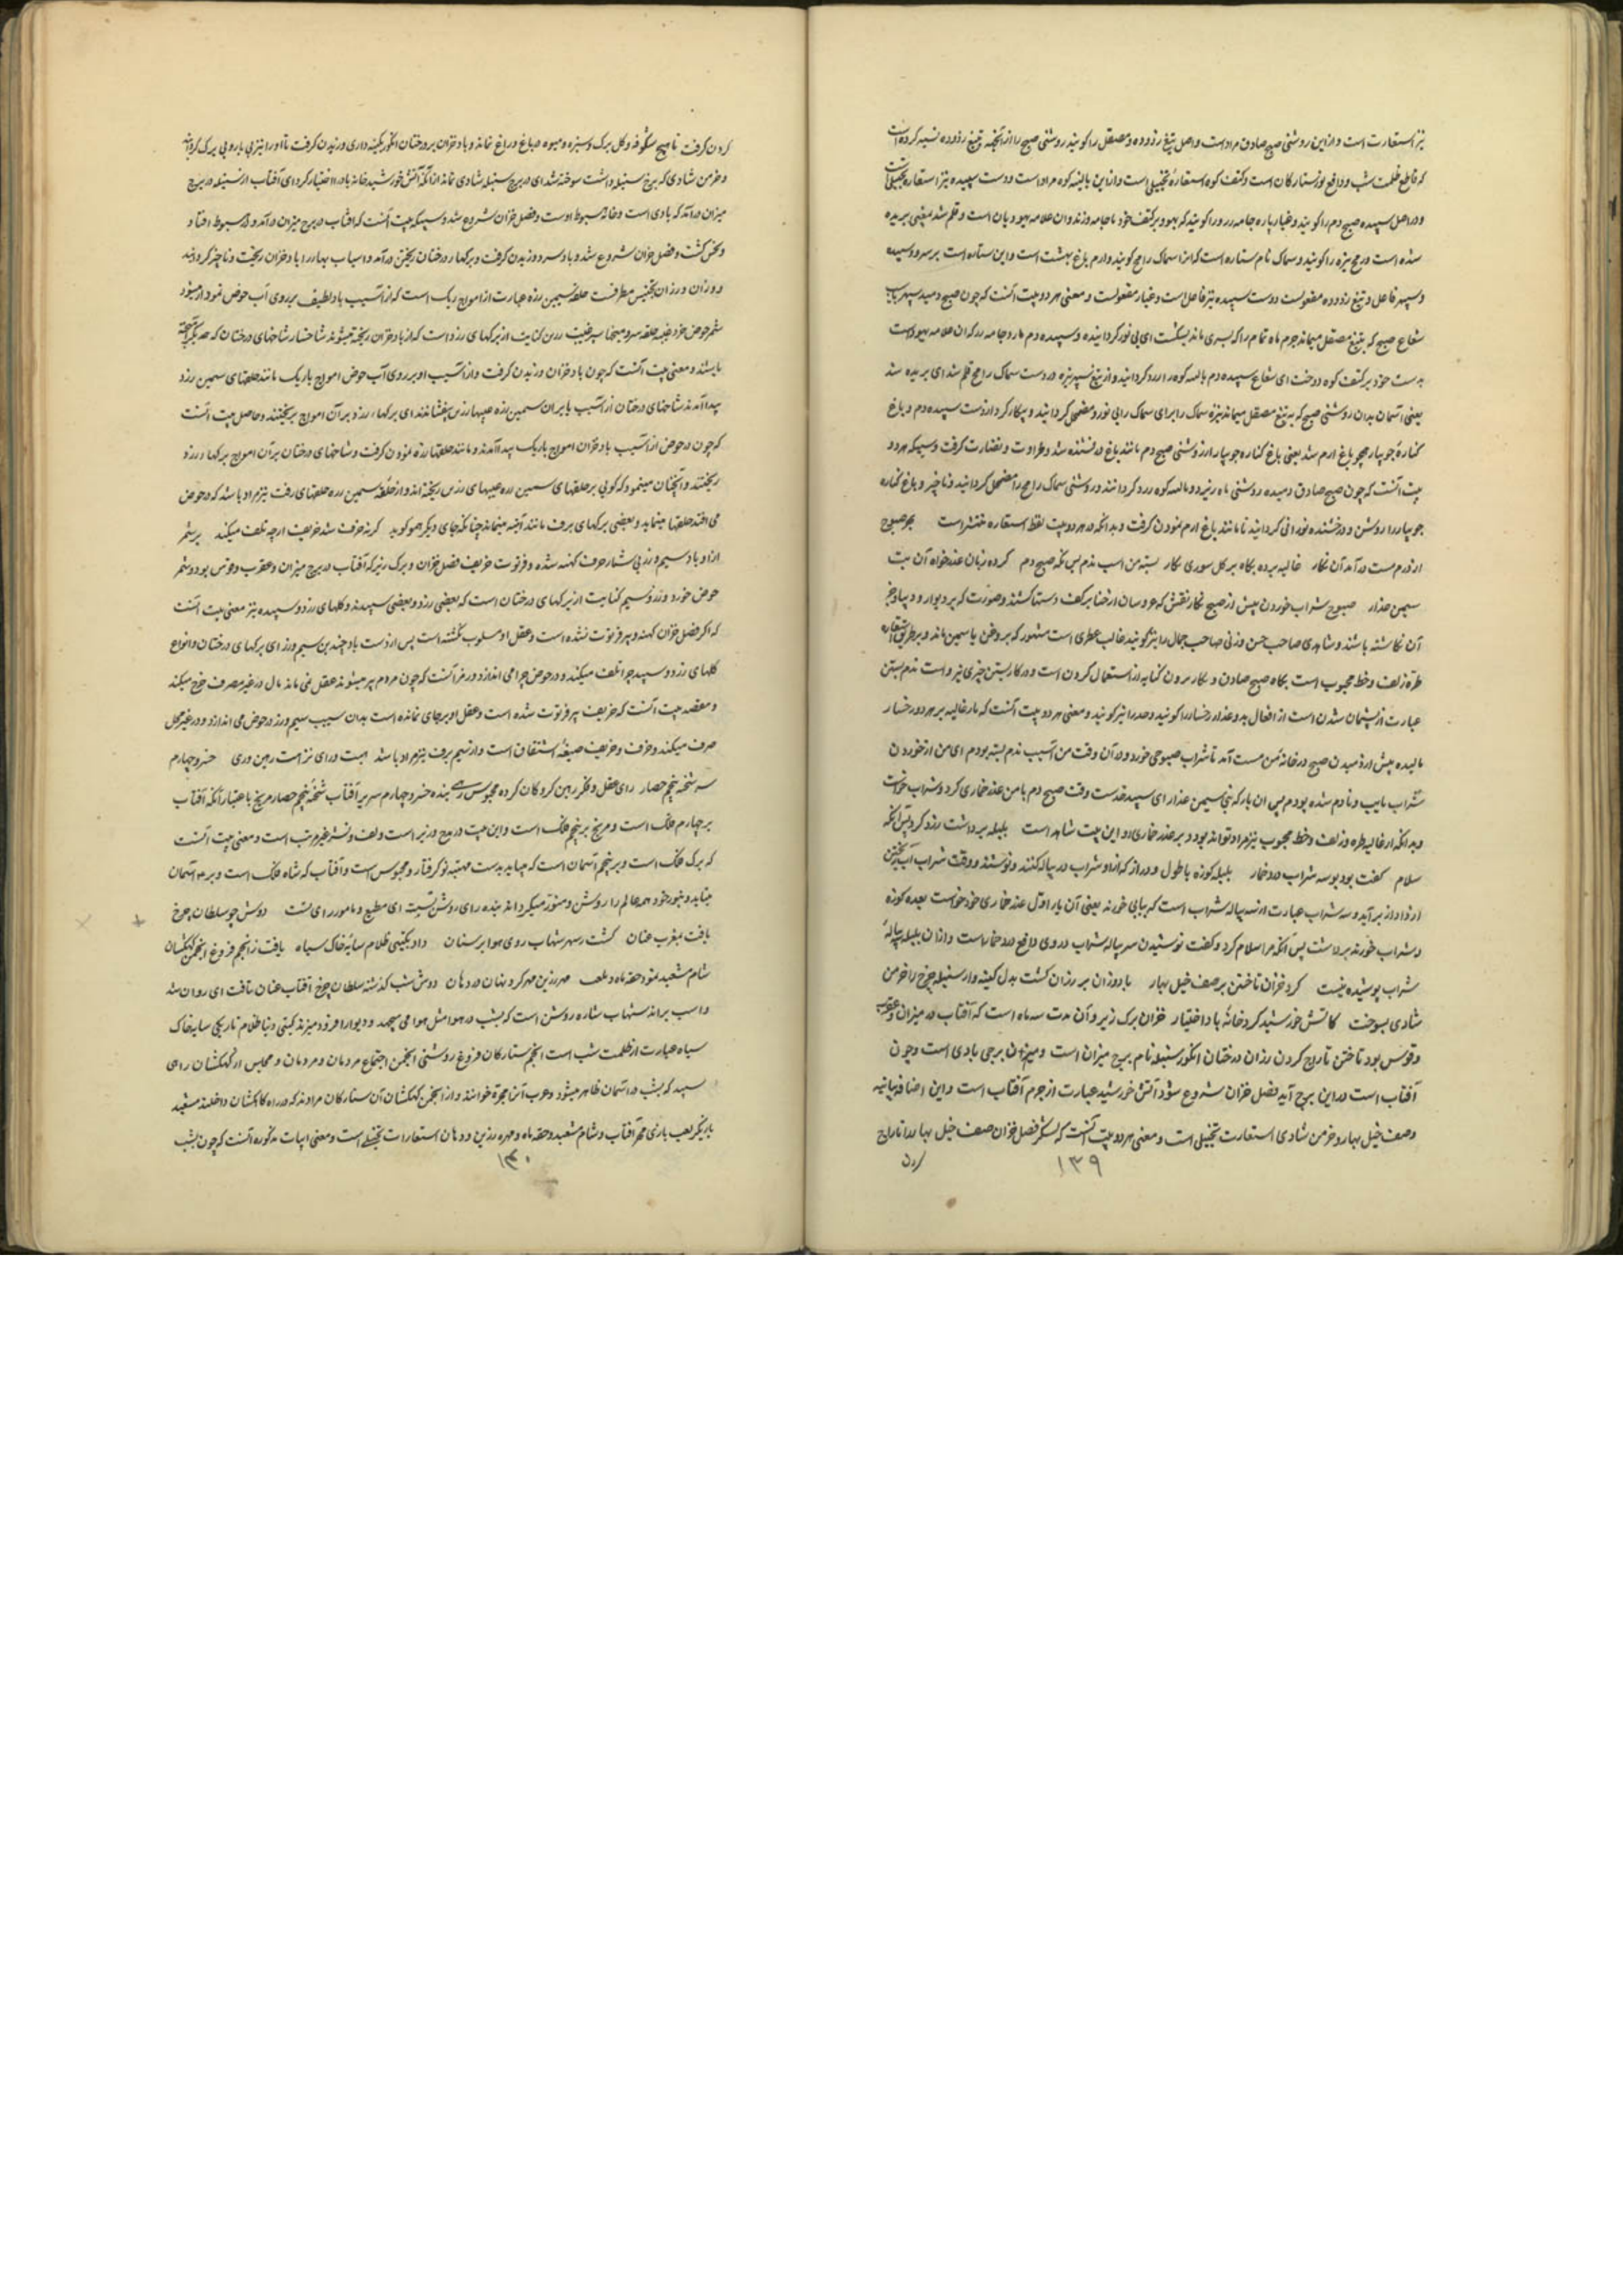 نیز استعارت است و از این روشنی صبح صادق مراد است و اصل تیغ زدوده و مصقل را گویند روشنی صبح را از آنجهة بتیغ زدوده نسبه کرده است
که قاطع ظلمت شب و دافع نور ستارگان است و کتف کوه استعارهٔ تخییلی است و ازین بالینه کوه مراد است و دست سپیده نیز استعاره تخییلی است
و در اصل سپیده صبح دم را گویند و غیار پاره جامه زرد را گویند که یهود بر کتف خود با جامه دوزند و ان علامه یهودیان است و قلم شد یعنی بریده
شده است و رمح نیزه را گویند و سماک نام ستاره است که انرا سماک رامح گویند و ارم باغ بهشت است و این ستاره است بر سر و وسیده
و سپهر فاعل و تیغ زدوده مفعولست و دست سپیده نیز فاعل است و غیار مفعولست و معنی هر دو بیت آنست که چون صبح دمید سپهر باب
شعاع صبح که بتیغ مصقل میماند جرم ماه تمام را که بسپری ماند بشکست ای بی نور گردانیده و سپیده دم پاره جامه زرد که ان علامه یهود است
بدست خود بر کتف کوه دوخت ای شعاع سپیده دم بالینه کوه را زرد گردانید و از تیغ سپهر نیزه در دست سماک رامح قلم شد ای بریده شد
یعنی آسمان بدان روشنی صبح که به تیغ مصقل میماند نیزه سماک را برای سماک رابی نور و مضمحل گردانید و بیکار کرد از دست سپیده دم و باغ
کنارهٔ جویبار همچو باغ ارم شد یعنی باغ کناره جویبار از روشنی صبح دم مانند باغ درفشنده شد و طراوت و نضارت گرفت و سیکه هر دو
بیت آنست که چون صبح صادق دمیده روشنی ماه رنبرد و بالینه کوه زرد گردانند و روشنی سماک رامح را مضمحل گردانید و ناچیز و باغ کناره
جویبار را روشن و درخشنده نورانی گردانید تا مانند باغ ارم نمودن گرفت و بدانکه در هر دو بیت لفظ استعاره منتشر است بهر صبوح
از درم مست در آمد آن نگار غالیه برده بگاه بر گل سوری بکار بسته من اسب ندم پس که صبح دم کرده زبان عذر خواه آن بت
سیمین عذار صبوح شراب خوردن پیش از صبح نگار نقش که عروسان از حنا بر کف دستها کشند و صورت که بر دیوار و دیبا و جز
آن نگاشته باشند و شاهدی صاحب حسن وزنی صاحب جمال را نیز گویند غالب عطری است مشهور که بروغن یاسمین ماند و بر طریق استعاره
طره زلف و خط محبوب است بگاه صبح صادق و بکار بردن کنایه از استعمال کردن است و در کار بستن چیزی نیز و است ندم بستن
عبارت از پشیمان شدن است از افعال بد و عذار رخسار را گویند و صدر را نیز گویند و معنی هر دو بیت آنست که یار غالیه بر هر دو رخسار
مالیده پیش از دمیدن صبح در خانه من مست آمد تا شراب صبوحی خورد و در آن وقت من آسیب ندم بسته بودم ای من از خوردن
شراب تایب و نادم شده بودم پس ان یار که بتی سیمین عذار ای سپید خدست وقت صبح دم با من عذر خماری کرد و شراب خواست
و بدانکه از غالیه طره و زلف و خط محبوب نیز مراد تواند بود و بر عذر خماری او این بیت شاهد است بلبله برداشت زود کرد پس آنگه
سلام گفت بود بوسه شراب درد خمار بلبله کوزه با طول و دراز که ازاو شراب در پیاله کنند و نوشند و وقت شراب آب ریختن
اواز از برآید و سه شراب عبارت از سه پیاله شراب است که بیابی خورند یعنی آن یار اول عذر خماری خود خواست بعده کوزه
و شراب خورند برداشت پس آنگه مرا سلام کرد و گفت نوشیدن سه پیاله شراب داروی دافع درد خمار است و ازان بلبله پیاله
شراب پوشیده نیست کرد خزان تاختن بر صف خیل بهار باد وزان بر رزان گشت بدل کینه وار سنبله چرخ را خرمن
شادی بسوخت کاتش خورشید کرد خانهٔ باد اختیار خزان برگ ریز و آن مدت سه ماه است که آفتاب در میزان و عقرب
و قوس بود تاختن تاراج کردن رزان درختان انگور سنبله نام برج میزان است و میزان برجی بادی است و چون
آفتاب است در این برج آید فصل خزان شروع شود آتش خورشید عبارت از جرم آفتاب است و این اضافه بیانیه
وصف خیل بهار و خرمن شادی استعارت تخییلی است و معنی هر دو بیت آنست که لشکر فصل خزان صف خیل بهار را تاراج
۱۳۹
کردن
کردن گرفت تا هیچ شگوفه و گل برگ و سبزه و میوه در باغ و راغ نماند و باد خزان بر درختان انگور بکینه داری وزیدن گرفت تا او را نیز بی بار و بی برگ گردانید
و خرمن شادی که برج سنبله داشت سوخته شد ای در برج سنبله شادی نماند از آنکه آتش خورشید خانه باد را اختیار کرد ای آفتاب از سنبله در برج
میزان درآمد که بادی است و خانه هبوط اوست و فصل خزان شروع شد و سیکه بیت آنست که آفتاب در برج میزان درآمد و در هبوط افتاد
و نحس گشت و فصل خزان شروع شد و باد سرد وزیدن گرفت و برگها از درختان ریختن درآمد و اسباب بهار را باد خزان ریخت و ناچیز گردانید
و وزان و رزان تجنیس مطرفست حلقه سیمین زره عبارت از امواج ریگ است که از آسیب باد لطیف بر روی آب حوض نمودار میشود
شمر حوض خورد غیبه حلقه سر و میخها سپر غیبت زرین کنایت از برگهای زرد است که از باد خزان ریخته میشوند شاخسار شاخهای درختان که همه یکجا
باشند و معنی بیت آنست که چون باد خزان وزیدن گرفت و از آسیب او بر روی آب حوض امواج باریک مانند حلقهای سیمین زره
پیدا آمدند شاخهای درختان از آسیب باد بران سیمین زره غیبها زرین بیفشاندند ای برگها زرد بر آن امواج بریختند و حاصل بیت آنست
که چون در حوض از آسیب باد خزان امواج باریک پیدا آمدند و مانند حلقها زره نمودن گرفت و شاخهای درختان بر آن امواج برگها زرد
ریختند و آنچنان مینمود که گویی بر حلقهای سیمین زره غیبهای زرین ریخته اند و از حلقه سیمین زره حلقهای برف نیز مراد باشد که در حوض
می افتد حلقها مینماید و بعضی برگهای برف مانند آئینه مینماید چنانکه جای دیگر همو گوید گرنه خرف شد خریف ازچه تلف میکند بر شمر
از او باد سیم و زر بی شمار خرف کهنه شده و فرتوت خریف فصل خزان و برگ ریز که آفتاب در برج میزان و عقرب و قوس بود و شمر
حوض خورد و زر و سیم کنایت از برگهای درختان است که بعضی زرد و بعضی سپیدند و گلهای زرد و سپیده نیز معنی بیت آنست
که اگر فصل خزان کهنه و پیر فرتوت نشده است و عقل او مسلوب نگشته است پس از دست باد چندین سیم و زر ای برگهای درختان و انواع
گلهای زرد و سپید چرا تلف میکند و در حوض چرا می اندازد و رمز آنست که چون مردم پیر میشوند عقل نمی ماند مال در غیر مصرف خرج میکند
و مقصد بیت آنست که خریف پیر فرتوت شده است و عقل او بر جای نمانده است بدان سبب سیم و زر در حوض می اندازد و در غیر محل
صرف میکند و خرف و خریف صیغهٔ اشتقاق است و از سیم برف نیز مراد باشد هست و رای نزاهت رهین وری خسرو چهارم
سریر شحنه پنجم حصار رای عقل و فکر رهین گروگان کرده محبوس رهی بنده خسرو چهارم سریر آفتاب شحنهٔ پنجم حصار مریخ باعتبار آنکه آفتاب
بر چهارم فلک است و مریخ بر پنجم فلک است و این بیت در مدح وزیر است و لف و نشر غیر مرتب است و معنی بیت آنست
که برگ فلک است و بر پنجم آسمان است که میباید بدست مهینه تو گرفتار و محبوس است و آفتاب که شاه فلک است و بر ۴ آسمان
میتابد و بنور خود همه عالم را روشن و منور میگرداند بنده رای روشن تست ای مطیع و مامور رای تست دوش چو سلطان چرخ
یافت بمغرب عنان گشت ز سهر شهاب روی هوا بر سنان داد بگیتی ظلام سایهٔ خاک سیاه یافت ز انجم فروغ انجمن کهکشان
شام مشعبد نمود حقه ماه و بلعب مهره زرین مهر کرد نهان در دهان دوش شب گذشته سلطان چرخ آفتاب عنان تافت ای روان شد
و اسب براند شهاب ستاره روشن است که بشب در هوا مثل هوا می سپهد و دیوار افروز میزند گیتی دنیا ظلام تاریکی سایه خاک
سیاه عبارت از ظلمت شب است انجم ستارگان فروغ روشنی انجمن اجتماع مردمان و مردمان و مجلس از کهکشان راهی
سپید که بشب در آسمان ظاهر میشود و عرب آنرا مجرة خوانند و از انجمن کهکشان آن ستارگان مرادند که در راه کاهکشان داخلند مشعبد
بازیگر لعب بازی مهر آفتاب و شام مشعبد و حقه ماه و مهره زرین و دهان استعارات تخییلی است و معنی ابیات مذکوره آنست که چون بشب
۱۴۰